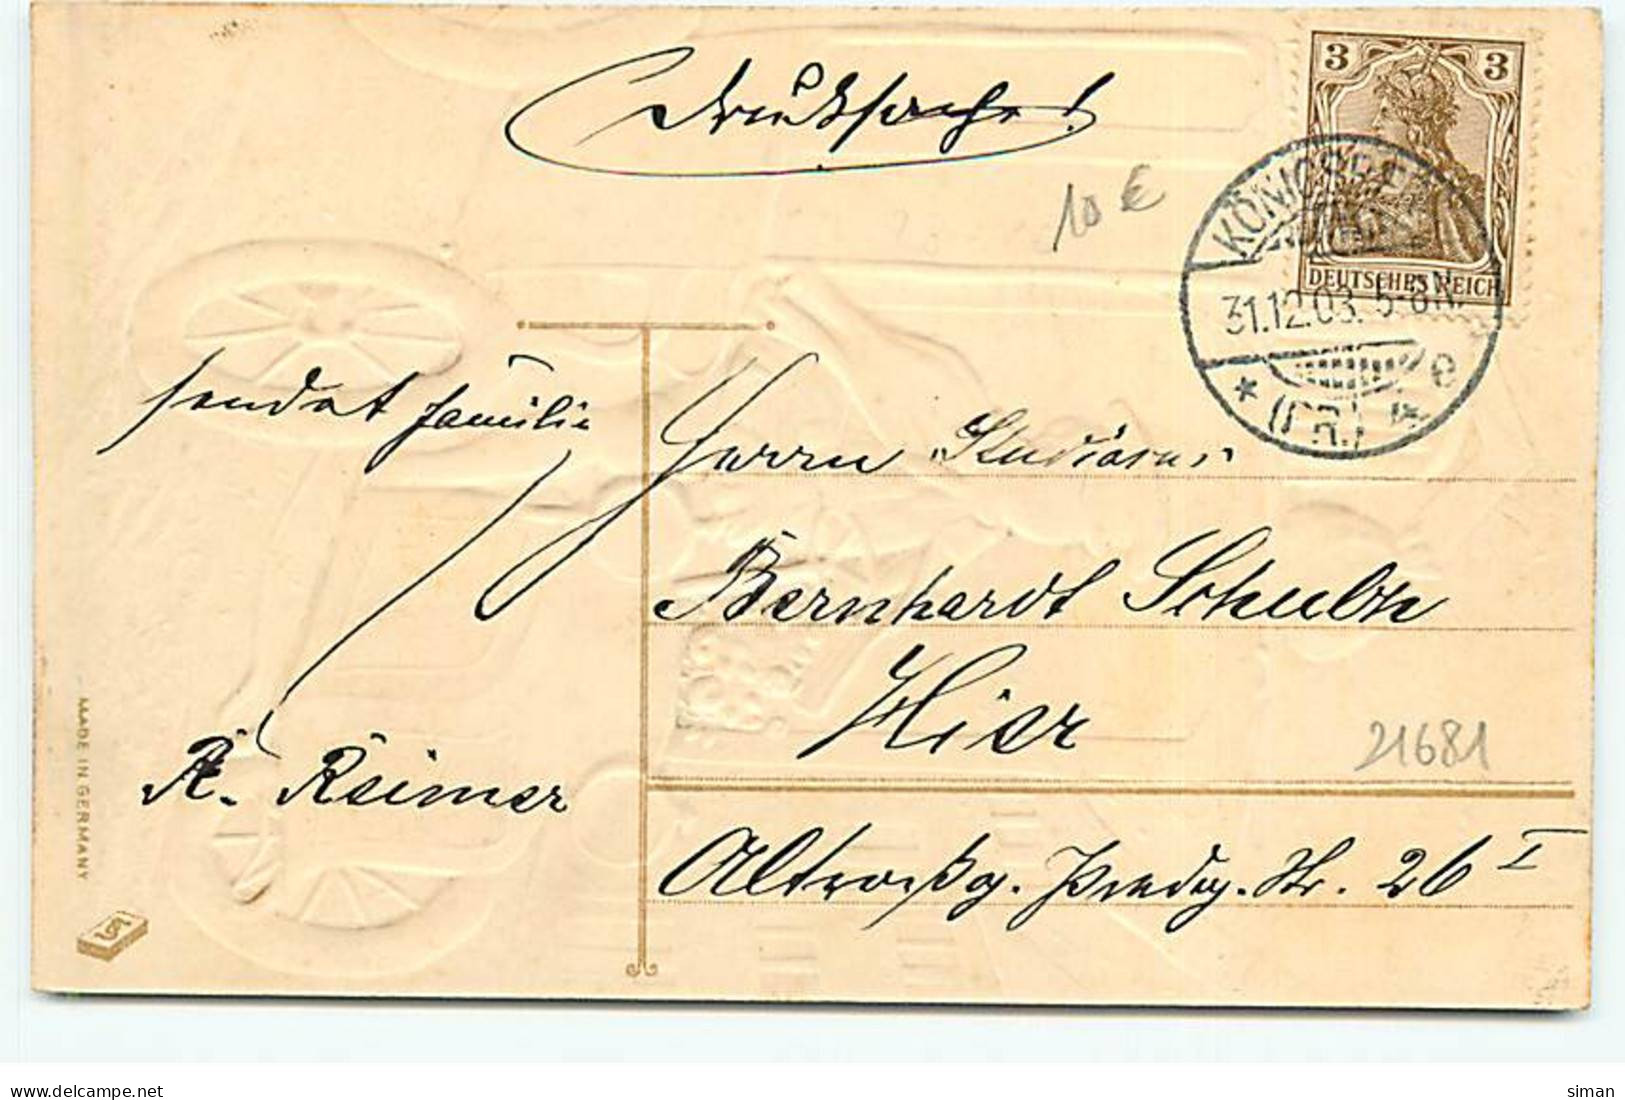 Drucksache!
10 €
3 3
DEUTSCHES REICH
KÖNIGSBERG
31.12.03. 5-6N.
* (PR.) * e
sendet Familie
Herrn „Studiosus"
Bernhardt Schultz
Hier
21681
A. Reimer
Altroßg. Predig. Str. 26 I
MADE IN GERMANY
delcampe.net
siman